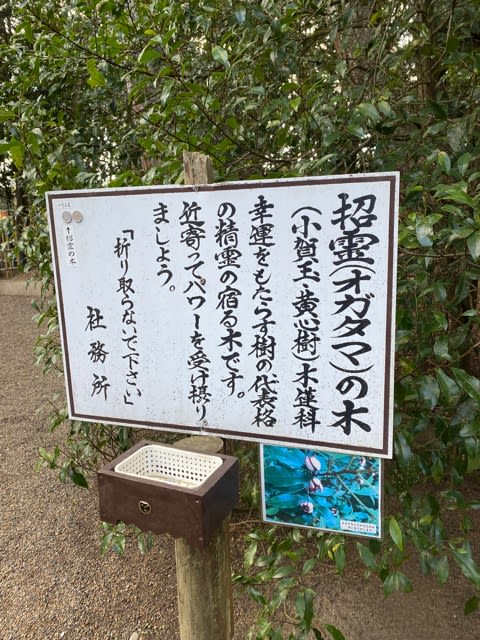 招霊(オガタマ)の木
(小賀玉・黄心樹)木蓮科
幸運をもたらす樹の代表格
の精霊の宿る木です。
近寄ってパワーを受け捗り
ましょう。
「折り取らないで下さい」
社務所
↑招霊の木